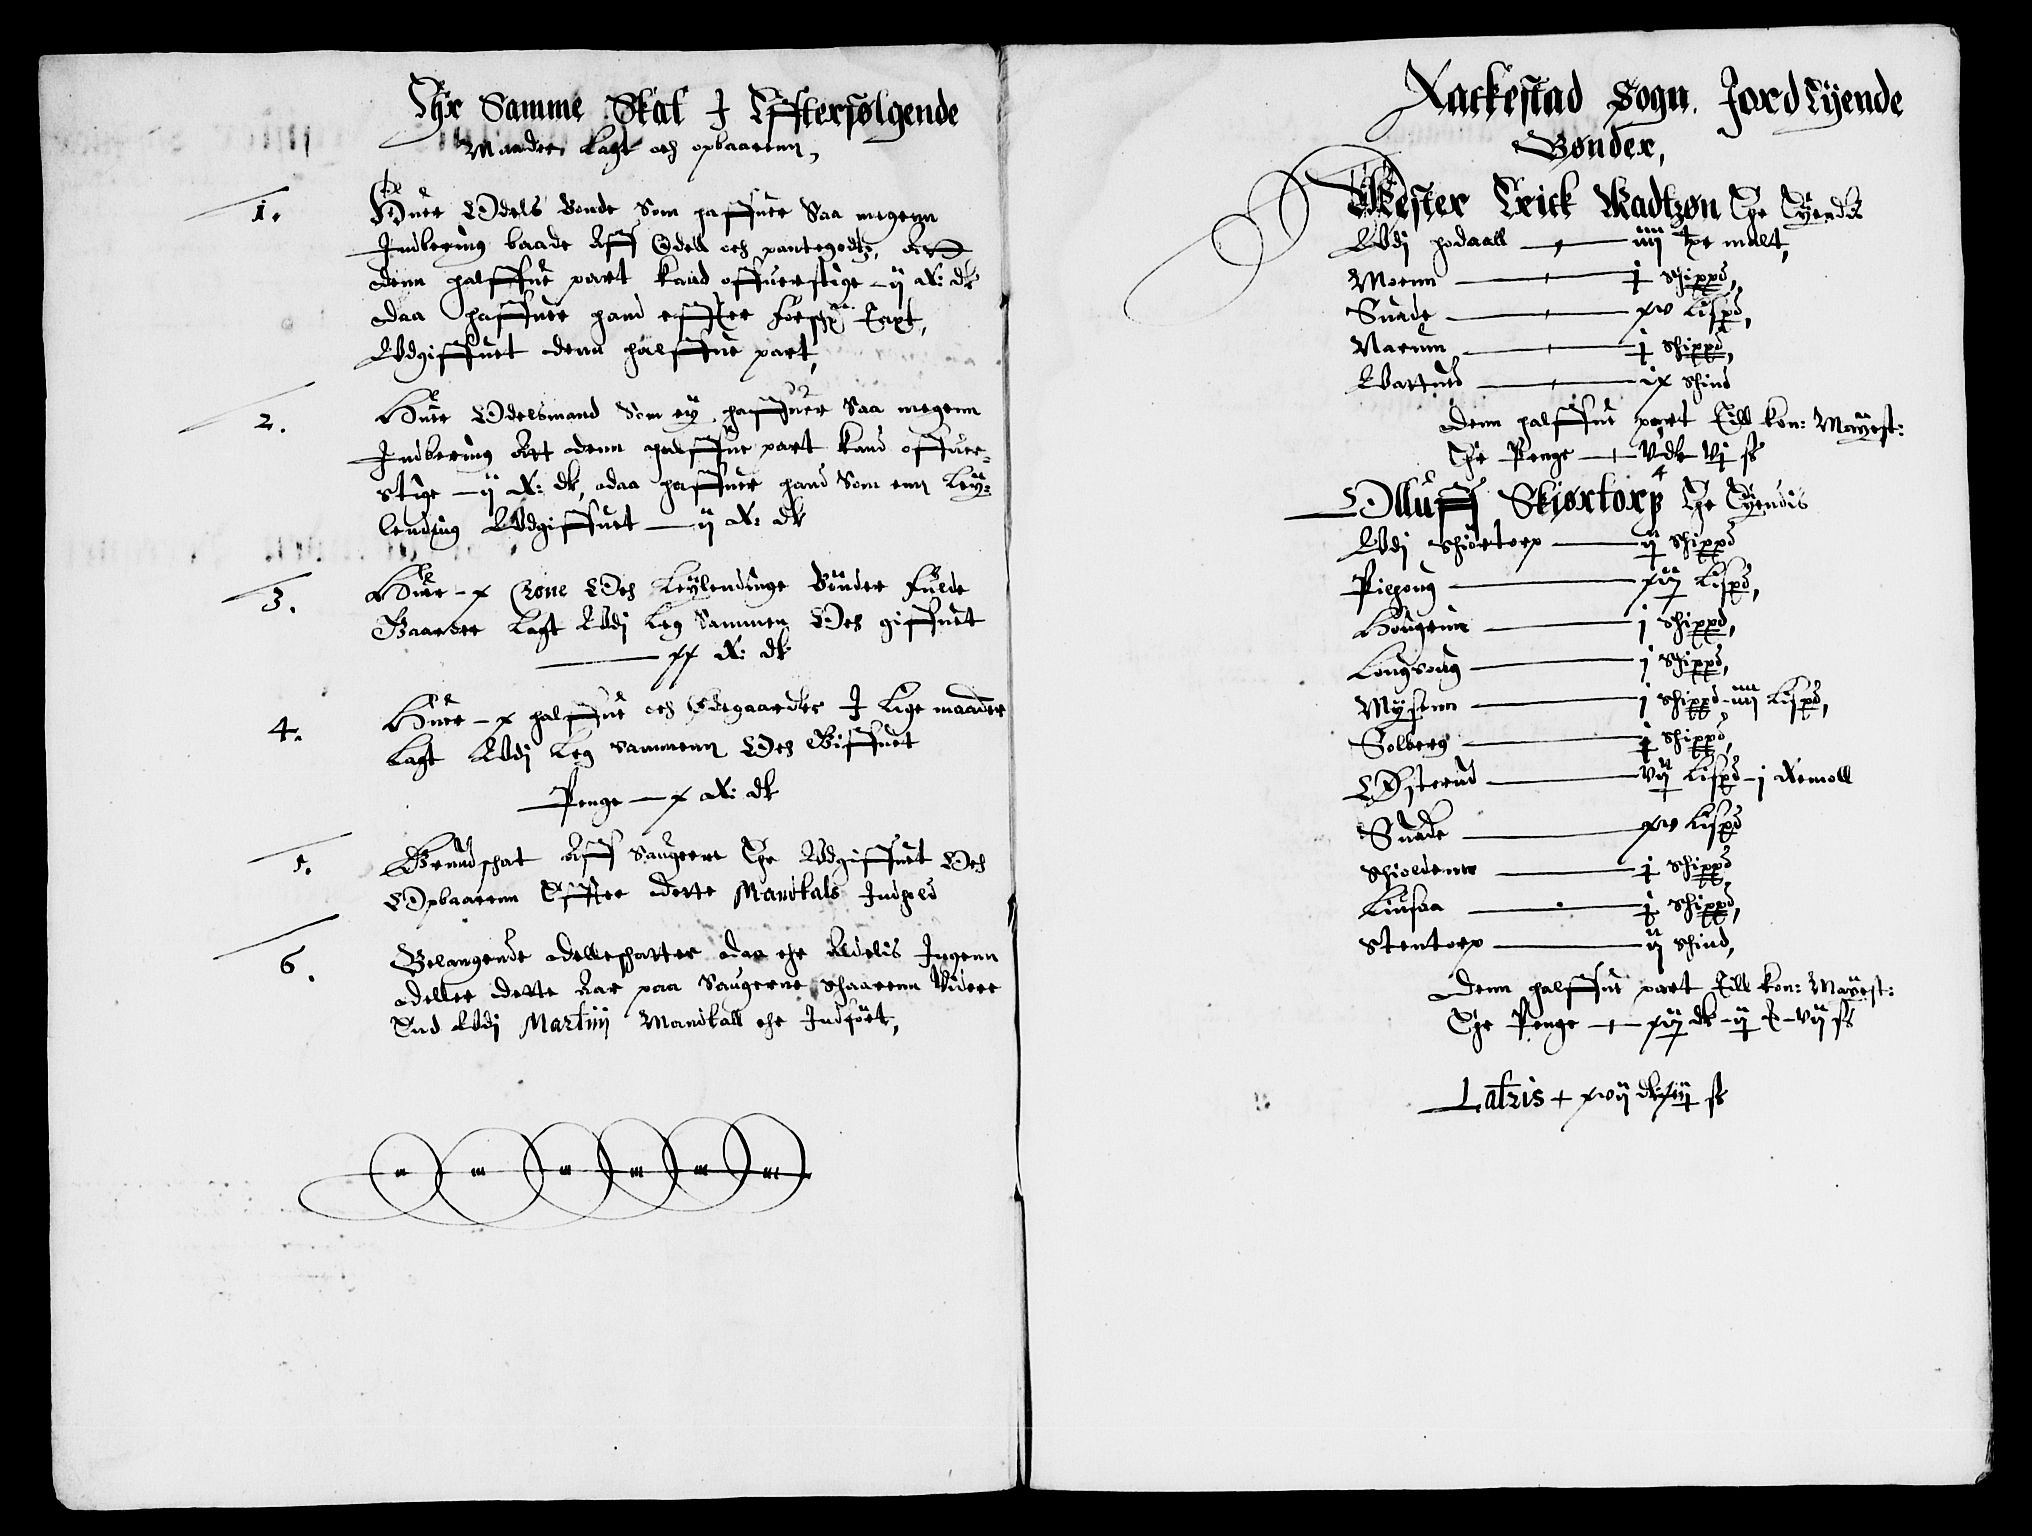 Ehr Samme Skat I Effterfølgende
Maader Lagt och opbaarenn,
1. Huer Odels Bonde Som haffuer Saa megenn
Indbering baade Aff Odell och pantegodtz, Att
denn halffue part kand offuerstige - ij R: dlr
daa haffuer hand effter Forschr: Taxt,
Udgiffuet denn halffue part,
2. Huer Odelsmand Som ey haffuer Saa megenn
Indbering Att denn halffue part kand offuer-
stige - ij R: dlr, daa haffuer hand Som enn Ley-
lending Udgiffuet - ij R: dlr
3. Huer - x Crone Och Leylendinge Bønder Fulde
Gaarder Lagt Udj Leg Sammen Och giffuet
xx R: dlr
4. Huer - x halffue och Ødegaarder I Lige maader
Lagt Udj Leg sammenn Och Giffuet
Penge - x R: dlr
5. Grundschat Aff Saugerne Ehr Udgiffuet Och
Opbaarenn Effter dette Mandtals Indhold
6. Belangende delleschatter daa ehr Aldelis Ingenn
deller dette Aar paa Saugerne schaarenn Videre
End Udj Martinj Mandtall ehr Indført,
Rackestad Sogn. Jord Eyende
Bønder,
Mester Erick Madtzøn Ehr Eyendis
Udj hodaall - iiij tpr malt,
Moenn - j Schippd,
Suade - xv Lispd,
Narum - j Schippd,
Vattued - ix Schind
Denn halffue part Till Kon: Mayest:
Ehr Penge - V dlr Vj ss
4
Olluff Skiørtorp Ehr Eyendis
Udj Schiørtorp - ij Schippd
Pielhoug - xiij Lispd,
Hougenn - j Schippd,
Longhoug - j Schippd,
Mysenn - j Schippd - iiij Lispd,
Solberg - j Schippd,
Østerud - vij Lispd - j Remoll
Suade - xv Lispd
Schioldenn - j Schippd
Liusaa - j Schippd,
Stentorp - ij Schind,
Denn halffue part Till Kon: Mayest:
Ehr Penge - xij dlr - ij t - vij ss
Latris + xvij dlr xiij ss